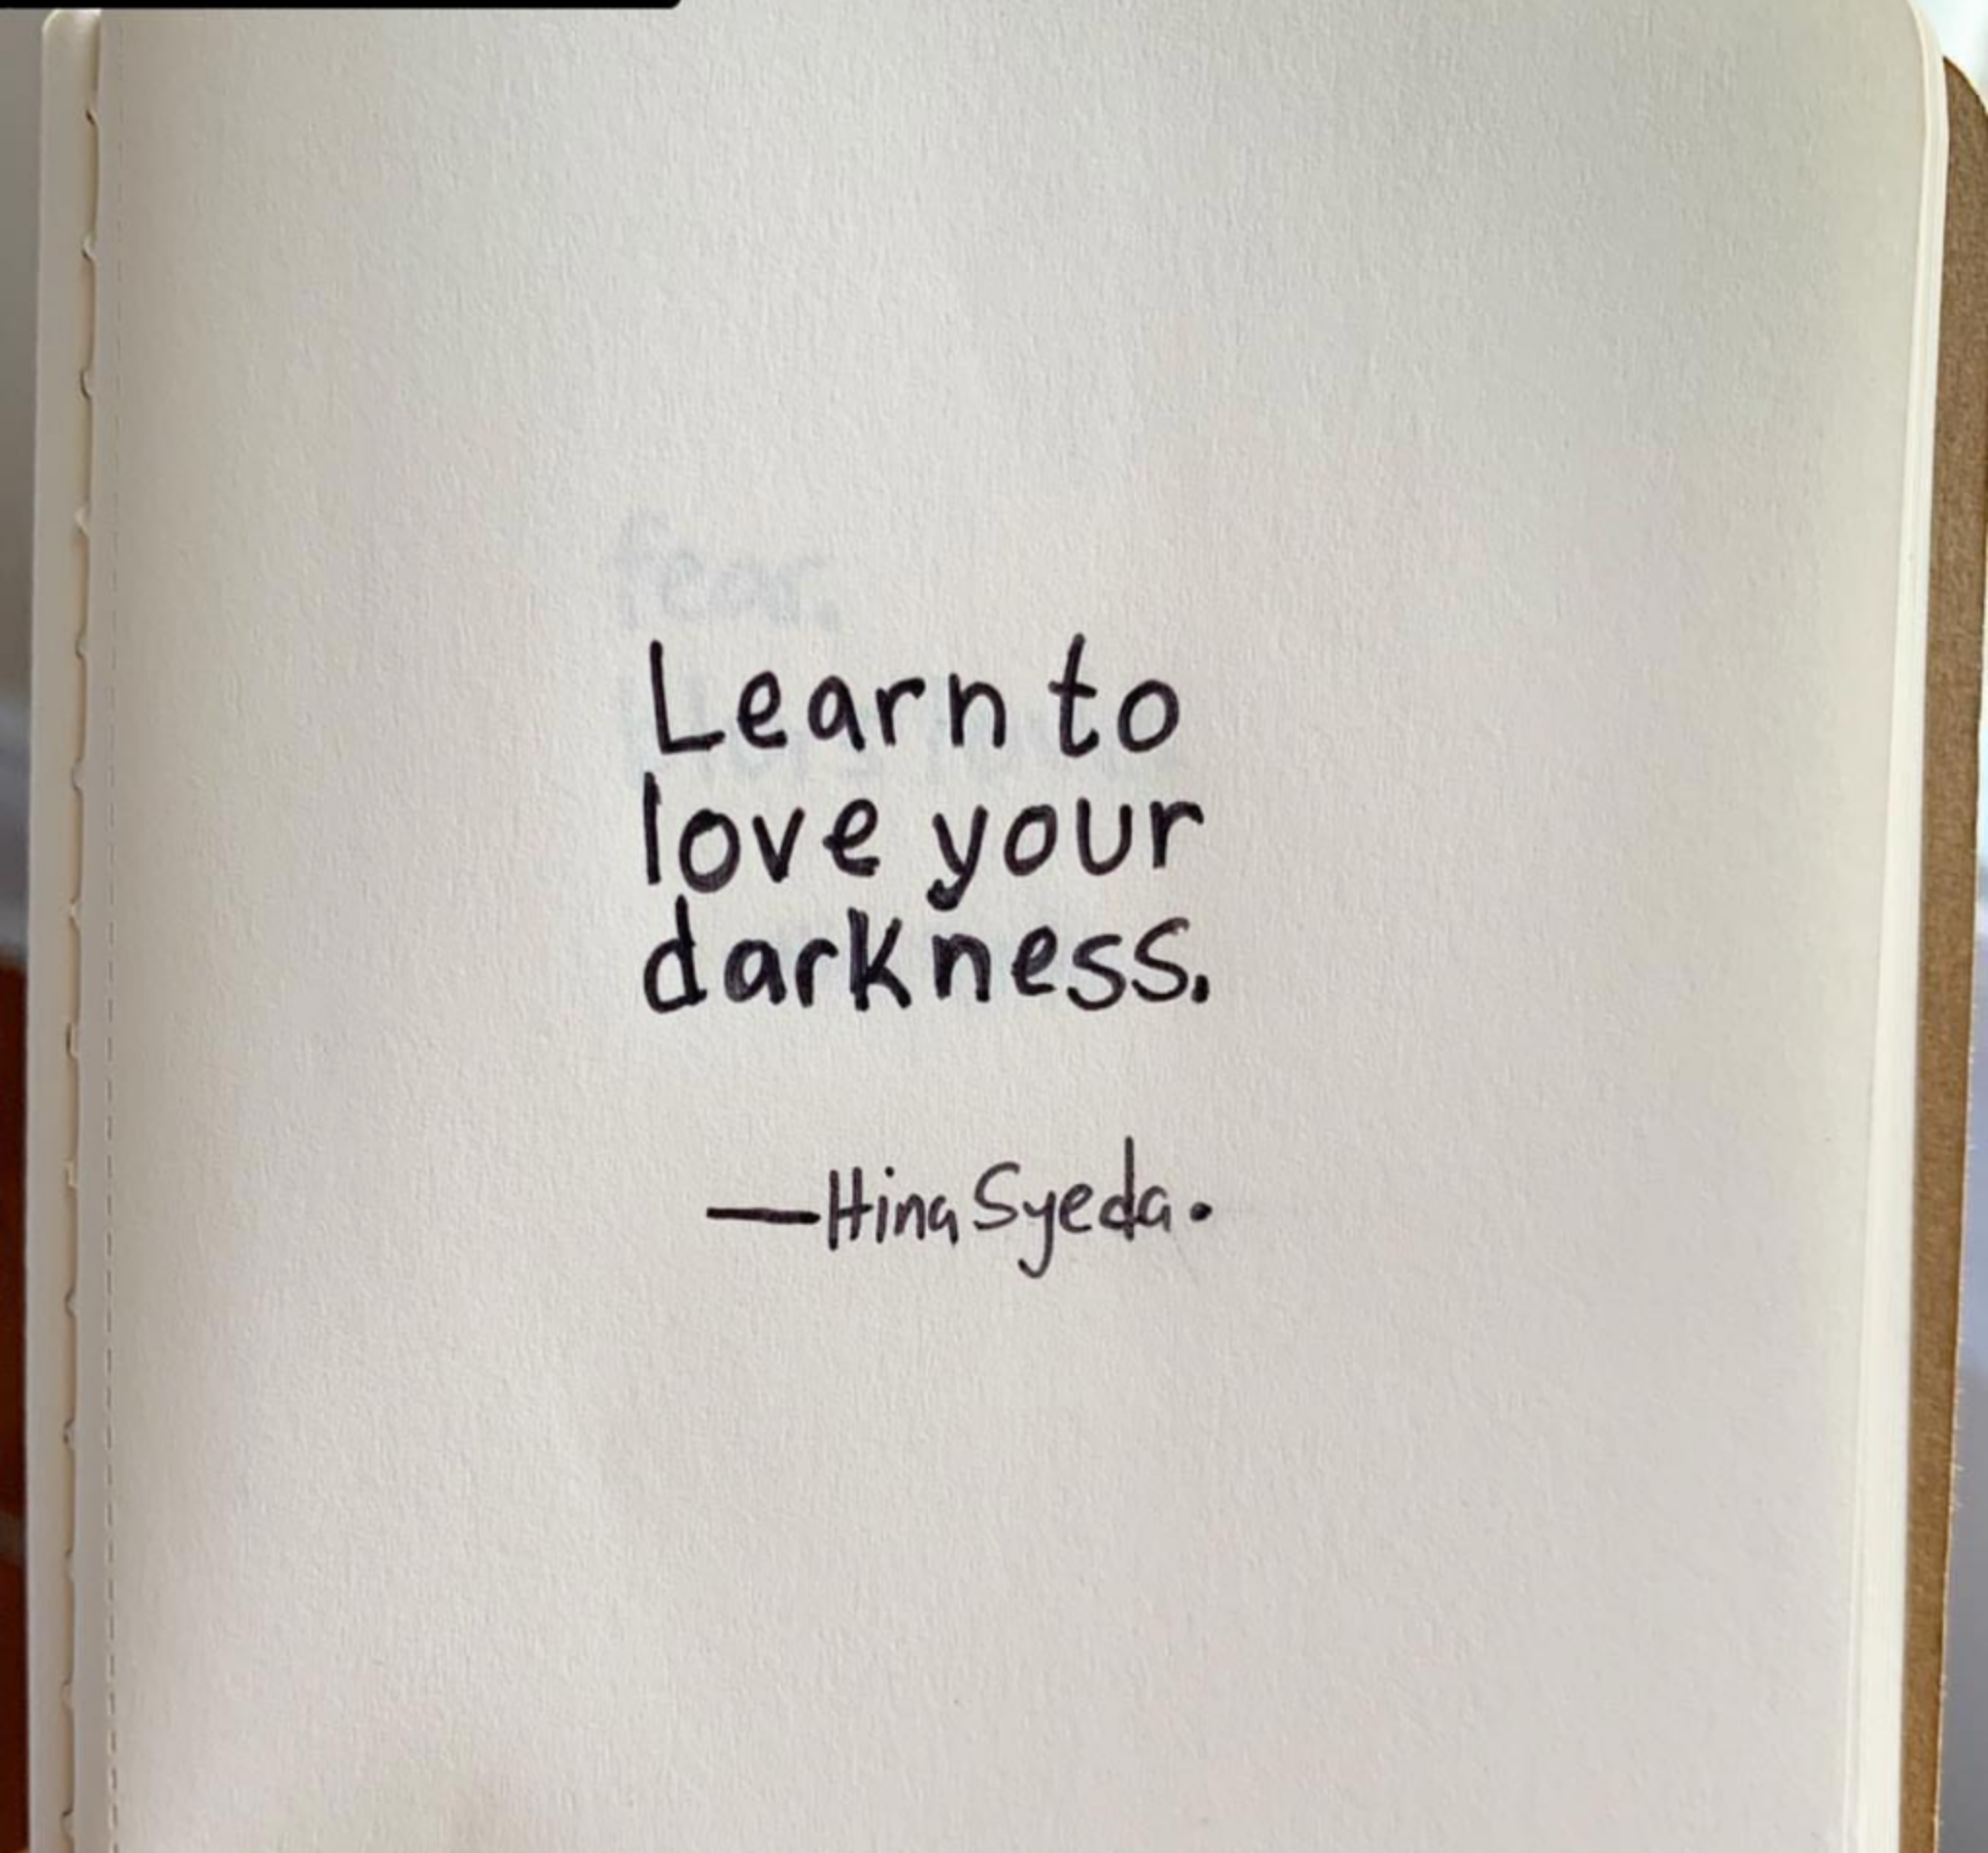 fear.
Learn to
love your
darkness.
—Hina Syeda.